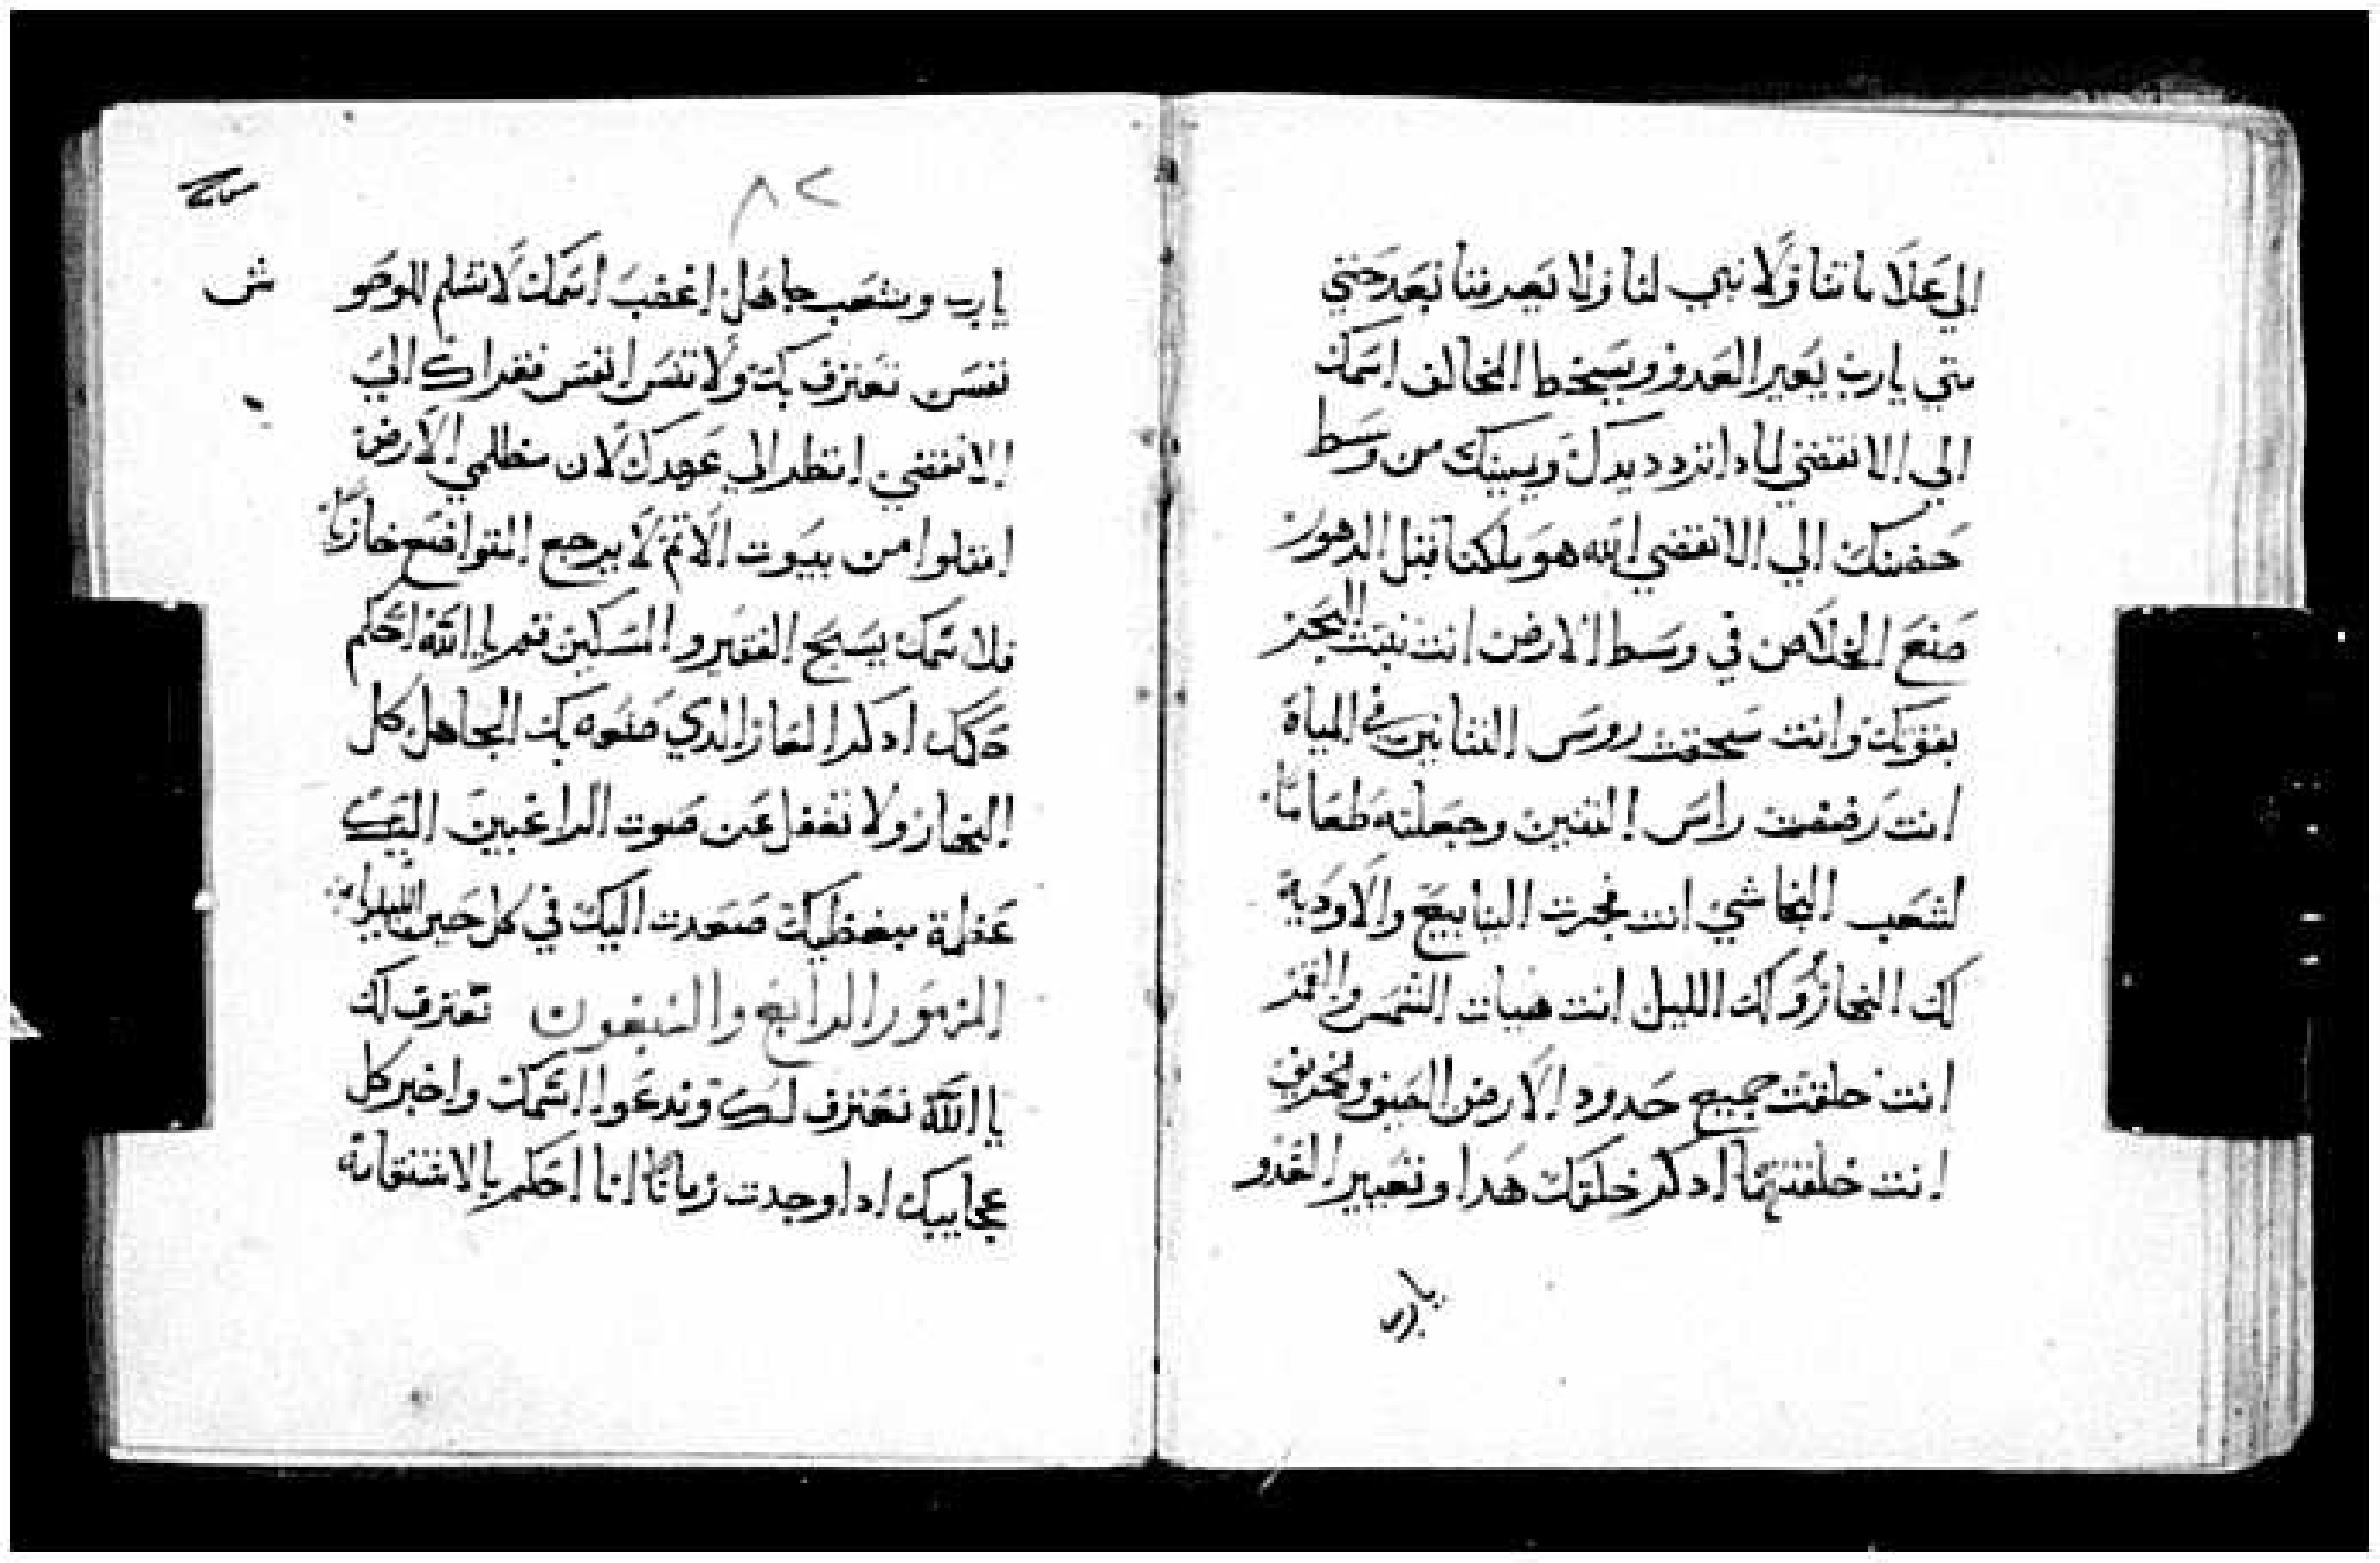 الي علاماتنا ولا نبي لنا ولا يعرفنا بعد حتي
متي يارب يعير العدو ويسخط المخالف اسمك
الي الانقضي لمادا ترد يدك ويمينك من وسط
حضنك الي الانقضي الله هو ملكنا قبل الدهور
صنع الخلاص في وسط الارض انت ثبت البحر
بقوتك وانت سحقت روس التنانين في المياة
انت رضضت راس التنين وجعلته طعاماً
لشعب النجاشي انت فجرت الينابيع والاودية
لك النهار ولك الليل انت هيات الشمس والقمر
انت خلقت جميع حدود الارض الصيف والخريف
انت خلقتهما ادكر خلقتك هدا وتعيير العدو
يارب
٨٢
يارب وشعب جاهل اغضب اسمك لا تسلم للوحو
ش
نفس تعترف بك ولا تنس انفس فقراك الي
الانقضي انظر الي عهدك لان مظلمي الارض
امتلوا من بيوت الاتم لا يرجع المتواضع خازياً
فلاسمك يسبح الفقير والمسكين قم يا الله احكم
حكمك ادكر العار الدي صنعه بك الجاهل كل
النهار ولا تغفل عن صوت الراغبين اليك
عظمة مبغظيك صعدت اليك في كل حين الليلويا
المزمور الرابع والسبعون نعترف لك
يا الله نعترف لك وندعوا اسمك واخبر كل
عجاييبك ادا وجدت زماناً انا احكم بالاستقامة